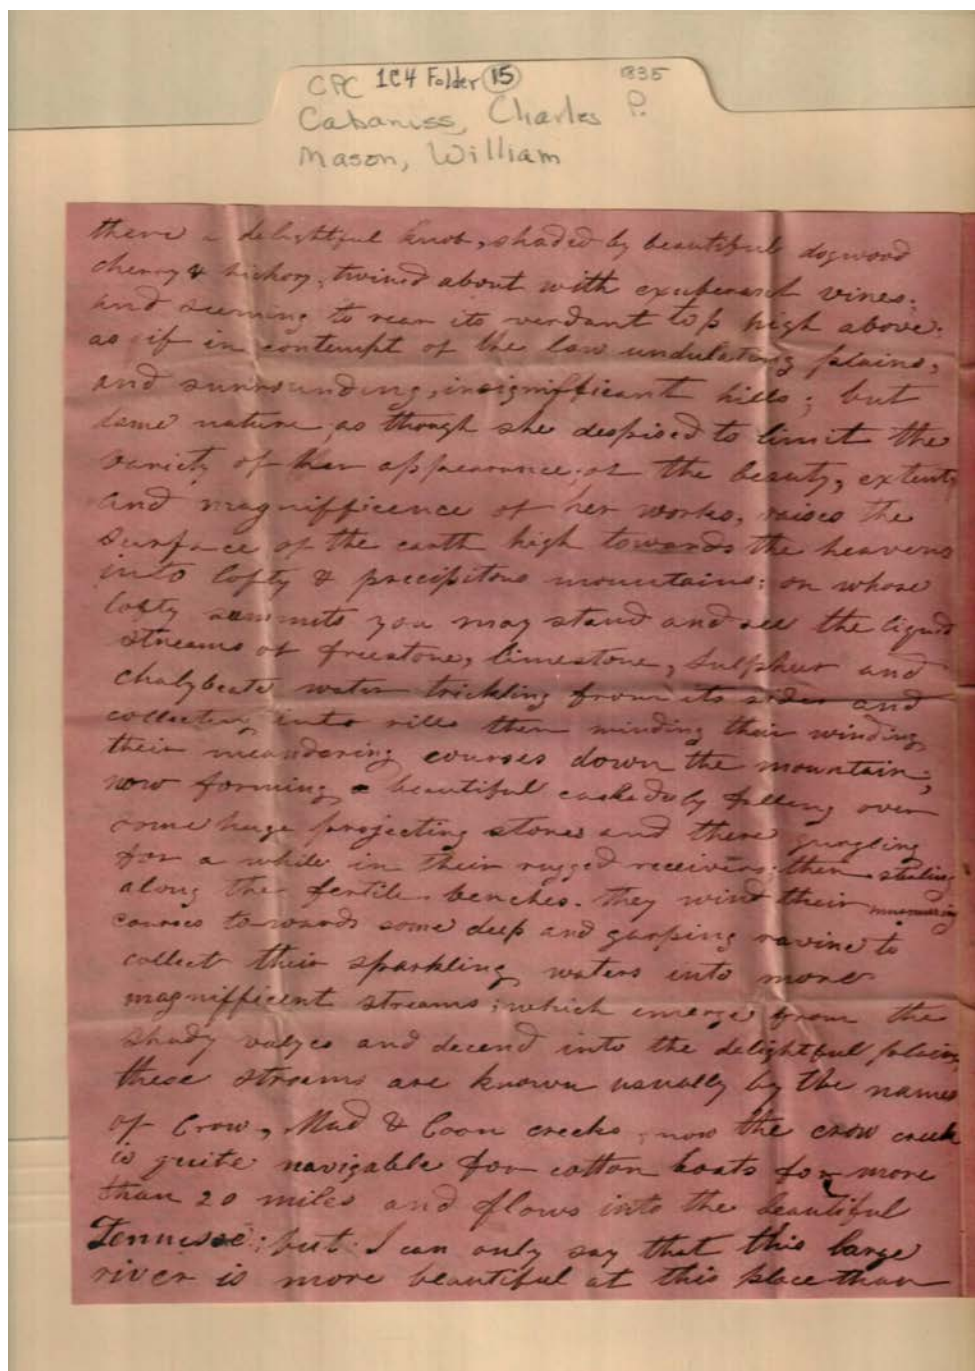 CPC 1C4 Folder 15 1835
Cabaniss, Charles P.
Mason, William
there a delightful knob, shaded by beautiful dogwood
cherry & hickory, twined about with exuberant vines;
and seeming to rear its verdant top high above;
as if in contempt of the low undulating plains,
and surrounding, insignifficant hills; but
dame nature as though she despised to limit the
variety of her appearance; or the beauty, extent,
and magnifficence of her works, raises the
surface of the earth high towards the heavens
into lofty & precipitous mountains; on whose
lofty summits you may stand and see the liquid
streams of freestone, limestone, sulpheur and
chalybeate water trickling from its sides and
collecting into rills then winding their winding
their meandering courses down the mountain;
now forming a beautiful by falling over
some huge projecting stones and there gurgling
for a while in their rugged receivers; then stealing
along the fertile benches. they wind their murmuring
courses towards some deep and garping ravine to
collect their sparkling waters into more
magnifficent streams; which emerge from the
shady valyes and decend into the delightful plains,
these streams are known usually by the names
of Crow, Mud & Coon creeks, now the crow creek
is quite navigable for cotton boats for more
than 20 miles and flows into the beautiful
Tennessee; but I can only say that this large
river is more beautiful at this place than